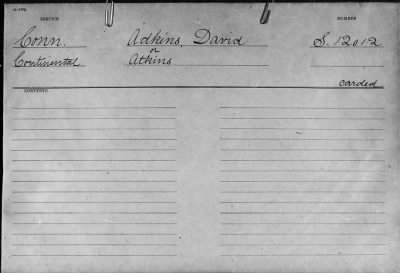 SERVICE NUMBER
Conn. Adkins, David S. 12012
or
Continental Atkins
carded
CONTENTS